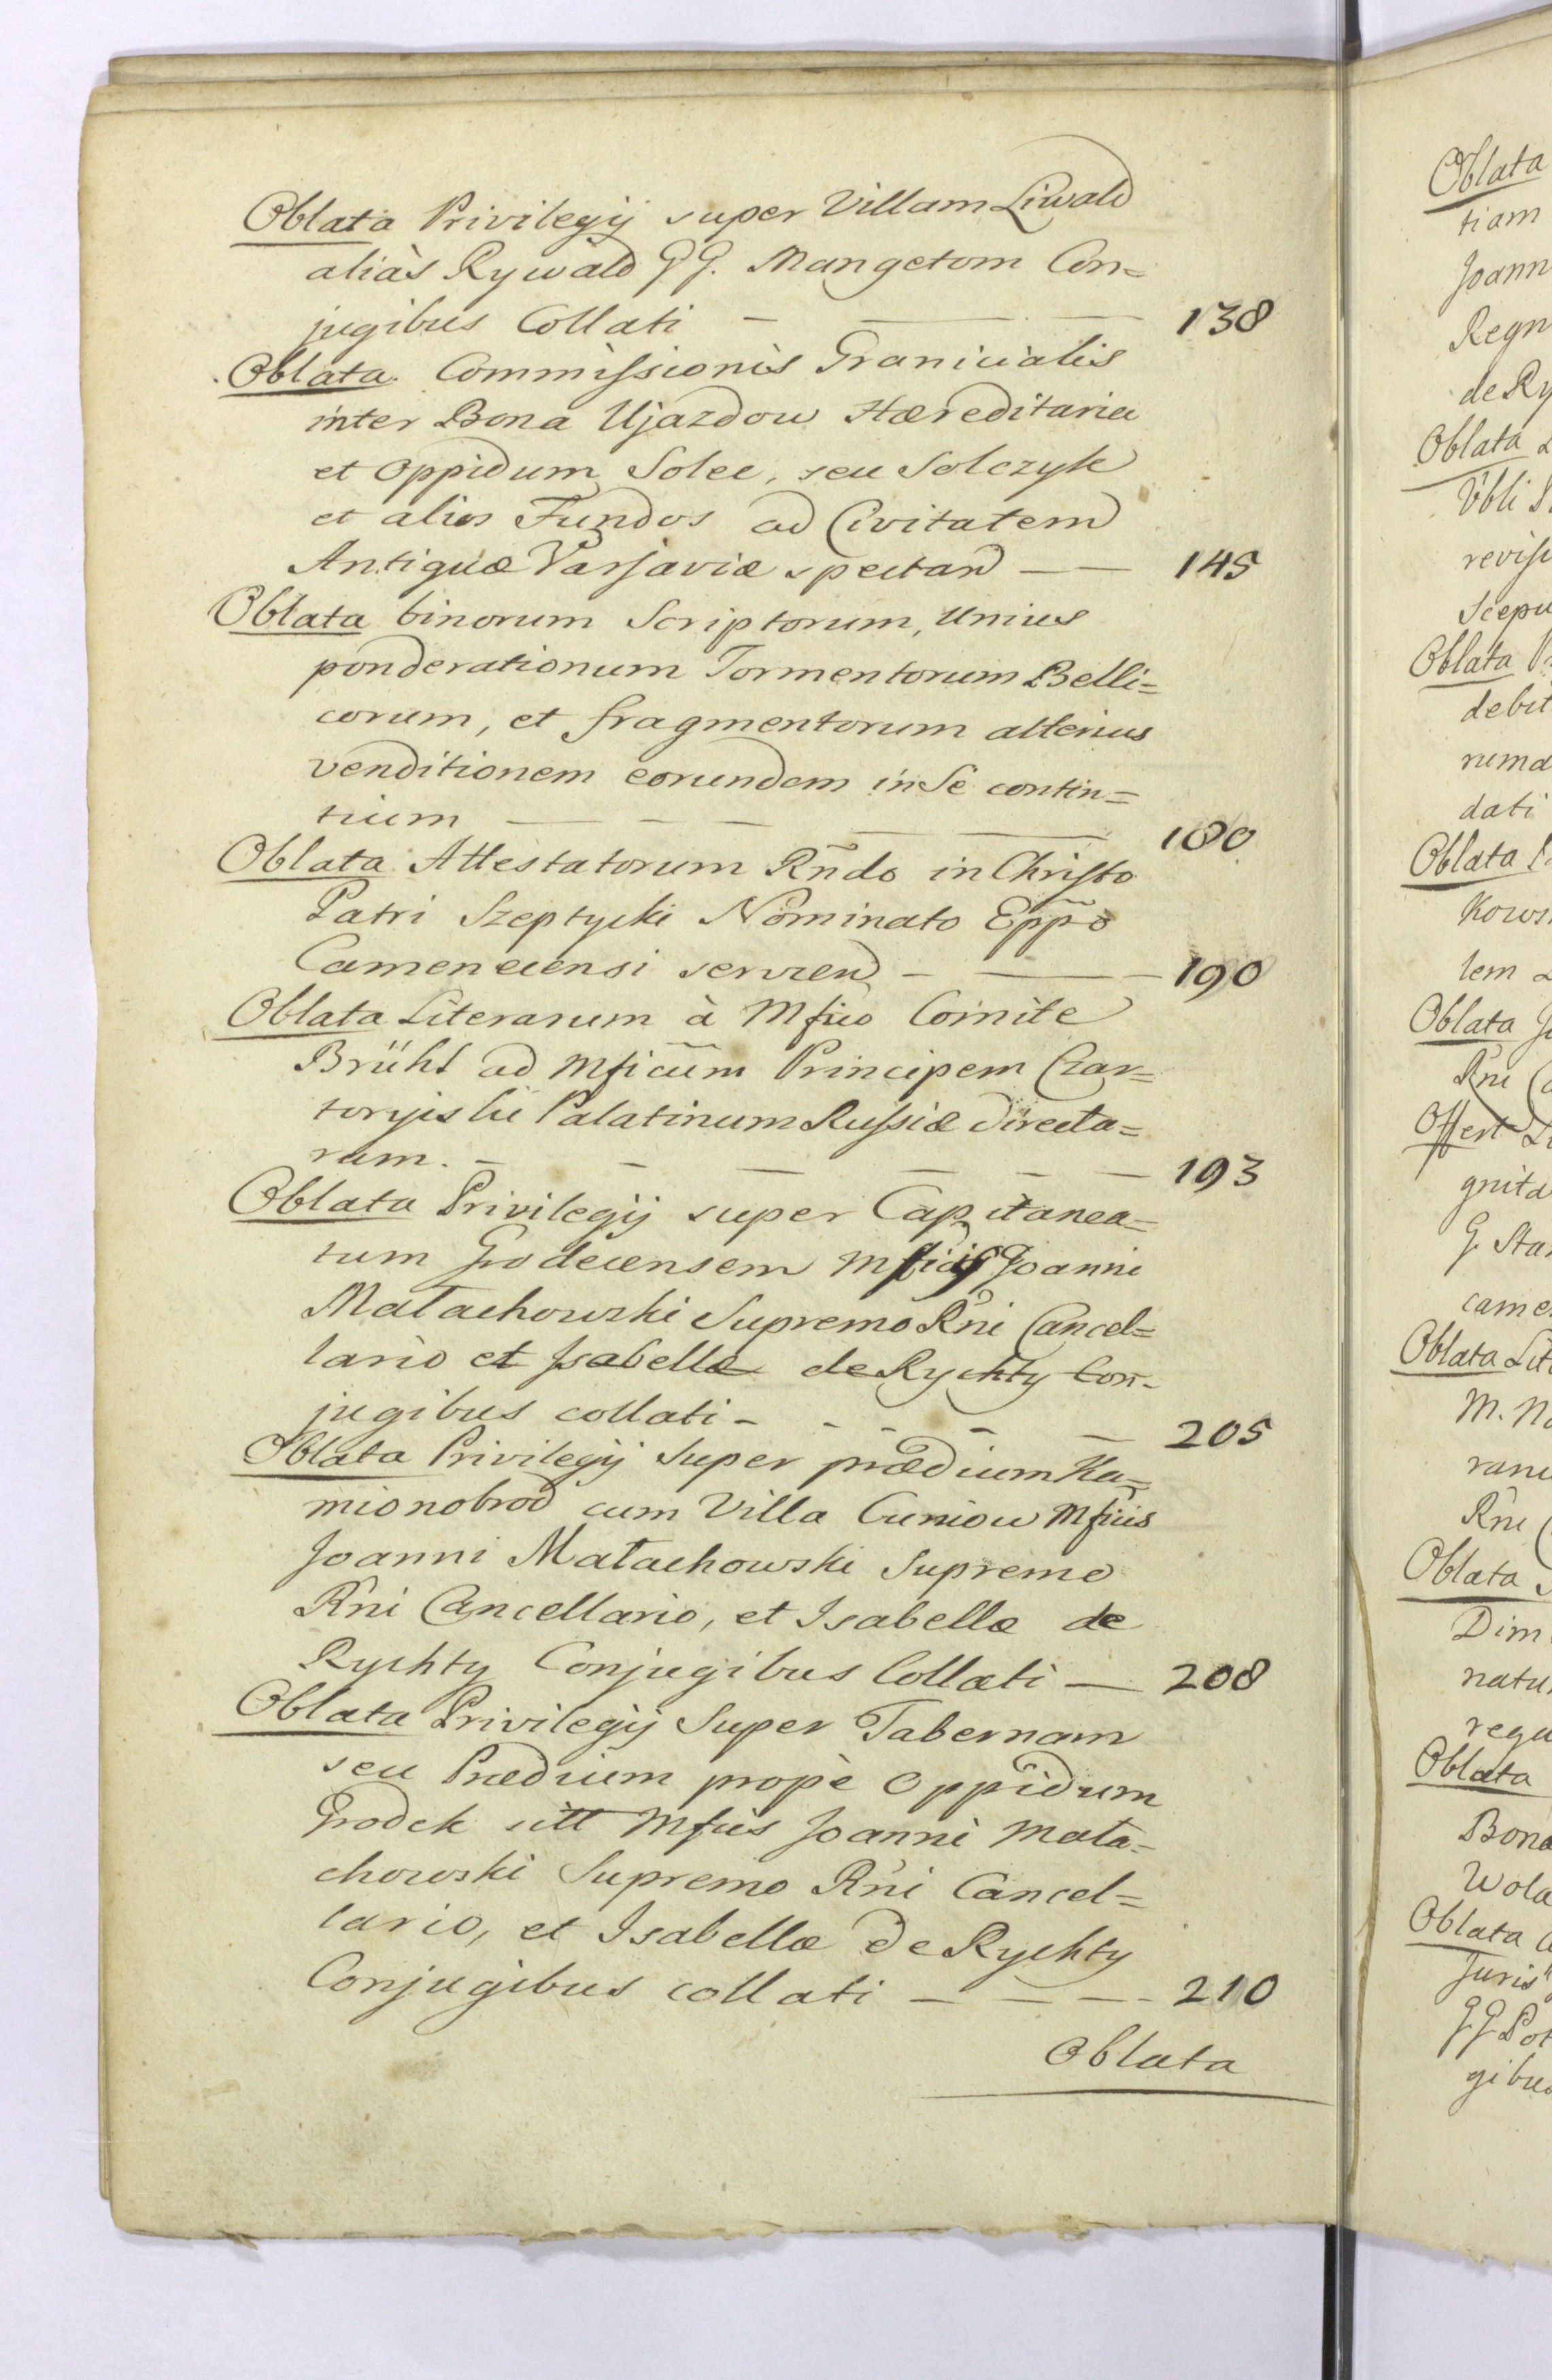 Oblata Privilegij super Villam Liwald
aliàs Rywald GG. Mangetom Con=
jugibus Collati — — — 138
Oblata Commissionis Granicialis
inter Bona Ujazdow Hæreditaria
et Oppidum Solec, seu Solczyk
et alios Fundos ad Civitatem
Antiquæ Varsaviæ spectand — — 145
Oblata binorum Scriptorum, Unius
ponderationum Tormentorum Belli=
corum, et fragmentorum alterius
venditionem eorundem in Se contin=
tium — — — — — 180
Oblata Attestatorum Rndo in Christo
Patri Szeptycki Nominato Eppo
Camenecensi servien — — 190
Oblata Literarum à Mfico Comite
Brühl ad Mficum Principem Czar=
toryiski Palatinum Russiæ directa=
rum. — — — — — — 193
Oblata Privilegij super Capitanea=
tum Grodecensem Joanni
Małachowski Supremo Rni Cancel=
lario et Isabellæ de Rychty Con-
jugibus collati - - - - — 205
Oblata Privilegij Super prædium Ka=
mionobrod cum Villa Cuniow Mficis
Joanni Małachowski Supremo
Rni Cancellario, et Isabellæ de
Rychty Conjugibus Collati — 208
Oblata Privilegij Super Tabernam
seu Prædium propè Oppidum
Grodek sitt Mficis Joanni Mała=
chowski Supremo Rni Cancel=
lario, et Isabellæ de Rychty
Conjugibus collati — — — 210
Oblata
Oblata
tiam
Joann
Regn
de Ry
Oblata
revisi
Scepu
Oblata
debit
rumd
dati
Oblata
Kows
lem
Oblata
Rni
Offert
gnita
G. Sta
came
Oblata Lit
M.
Rni
Oblata
Dim
natu
regu
Oblata
Bona
Wola
Oblata
Juris
GG Pot
gibus